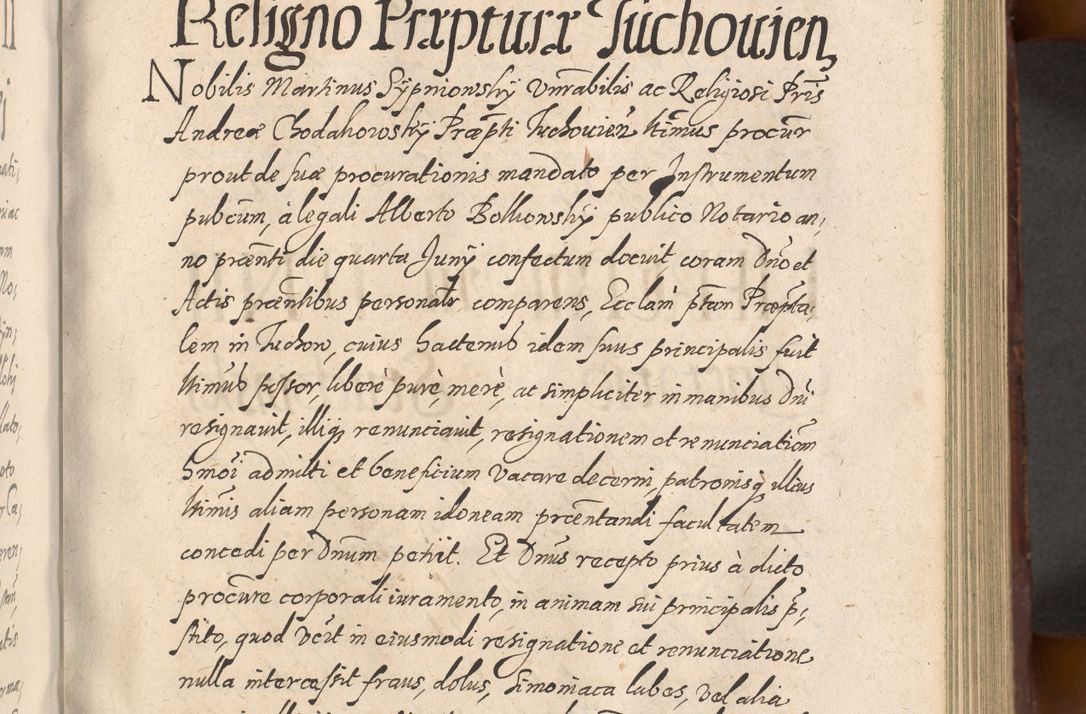 Religno Præpturæ Tuchouien,
Nobilis Martinus Sypniowsky Vnrabilis ac Religiosi Pris
Andreæ Chodakowsky Præpti Tuchouien ltimus procur
prout de suæ procurationis mandato per Instrumentum
pubcum, à legali Alberto Bolkowsky publico Notario an,
no præenti die quarta Juny confectum docuit, coram Dno et
Actis præentibus personalr comparens, Ecclam ptam Præpta,
lem in Tuchow, cuius hactenus idem suus principalis fuit
ltimus possor, liberè purè, merè, ac simpliciter in manibus Dni
resignauit, illiq renunciauit, resignationem et renunciationm
hmoi admitti et beneficium vacare decerni, patronisq illius
ltimis aliam personam idoneam præentandi facultatem
concedi per Dnum petiit. Et Dnus recepto prius à dicto
procure corporali iuramento, in animam sui principalis p,
stito, quod vert in eiusmodi resignatione et renunciatione
nulla intercessit fraus, dolus, Simoniaca labes, vel alia